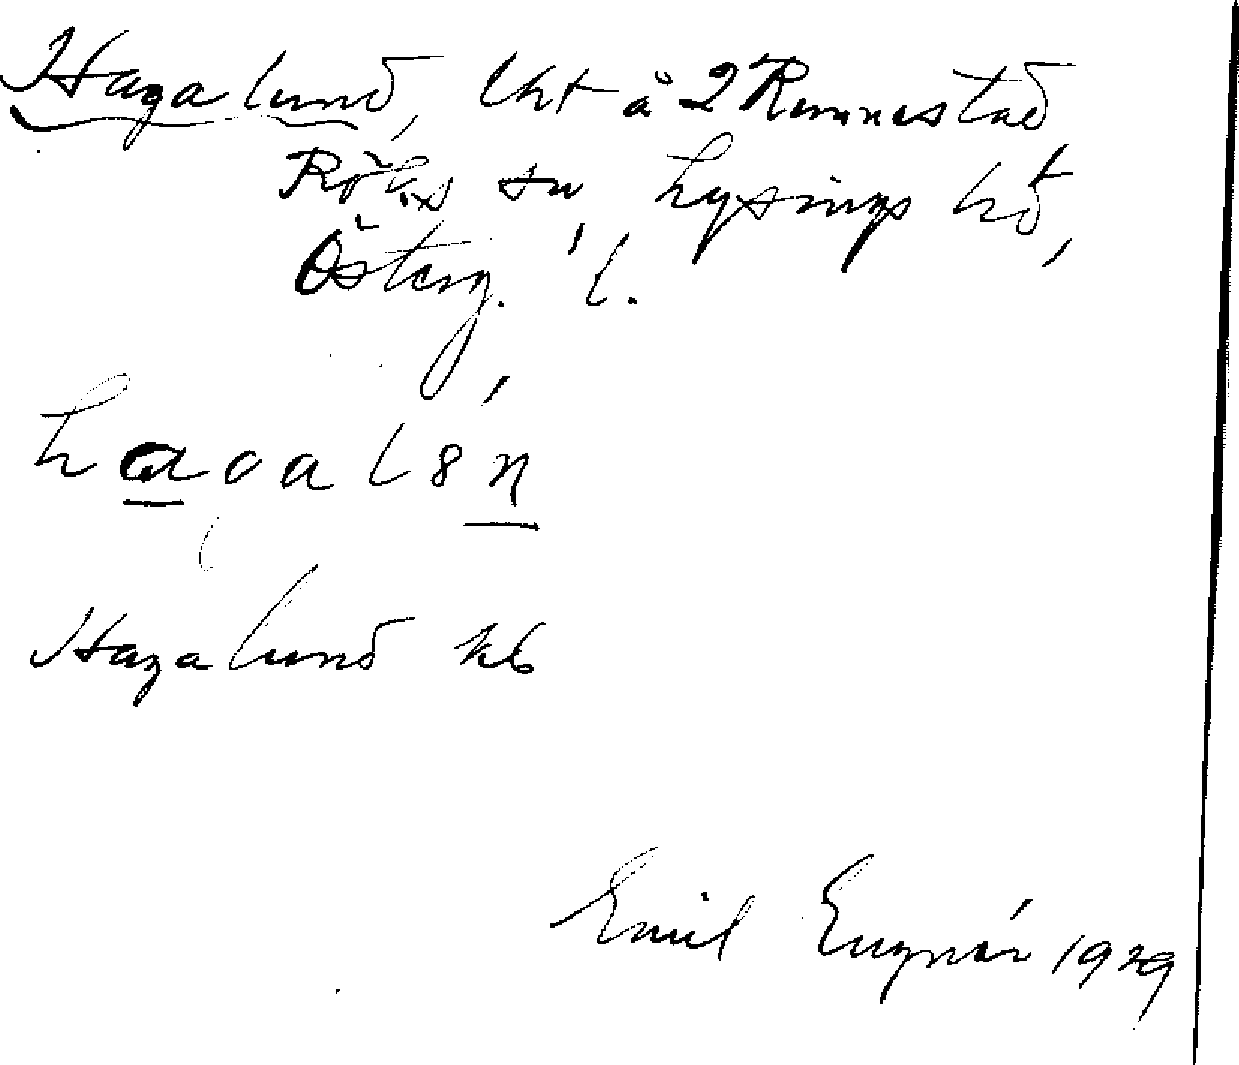 Hagalund, lht å 2 Rennestad
Röks sn, Lysings hd,
Österg. l.
Hagalund kb
Emil Eugnér 1929